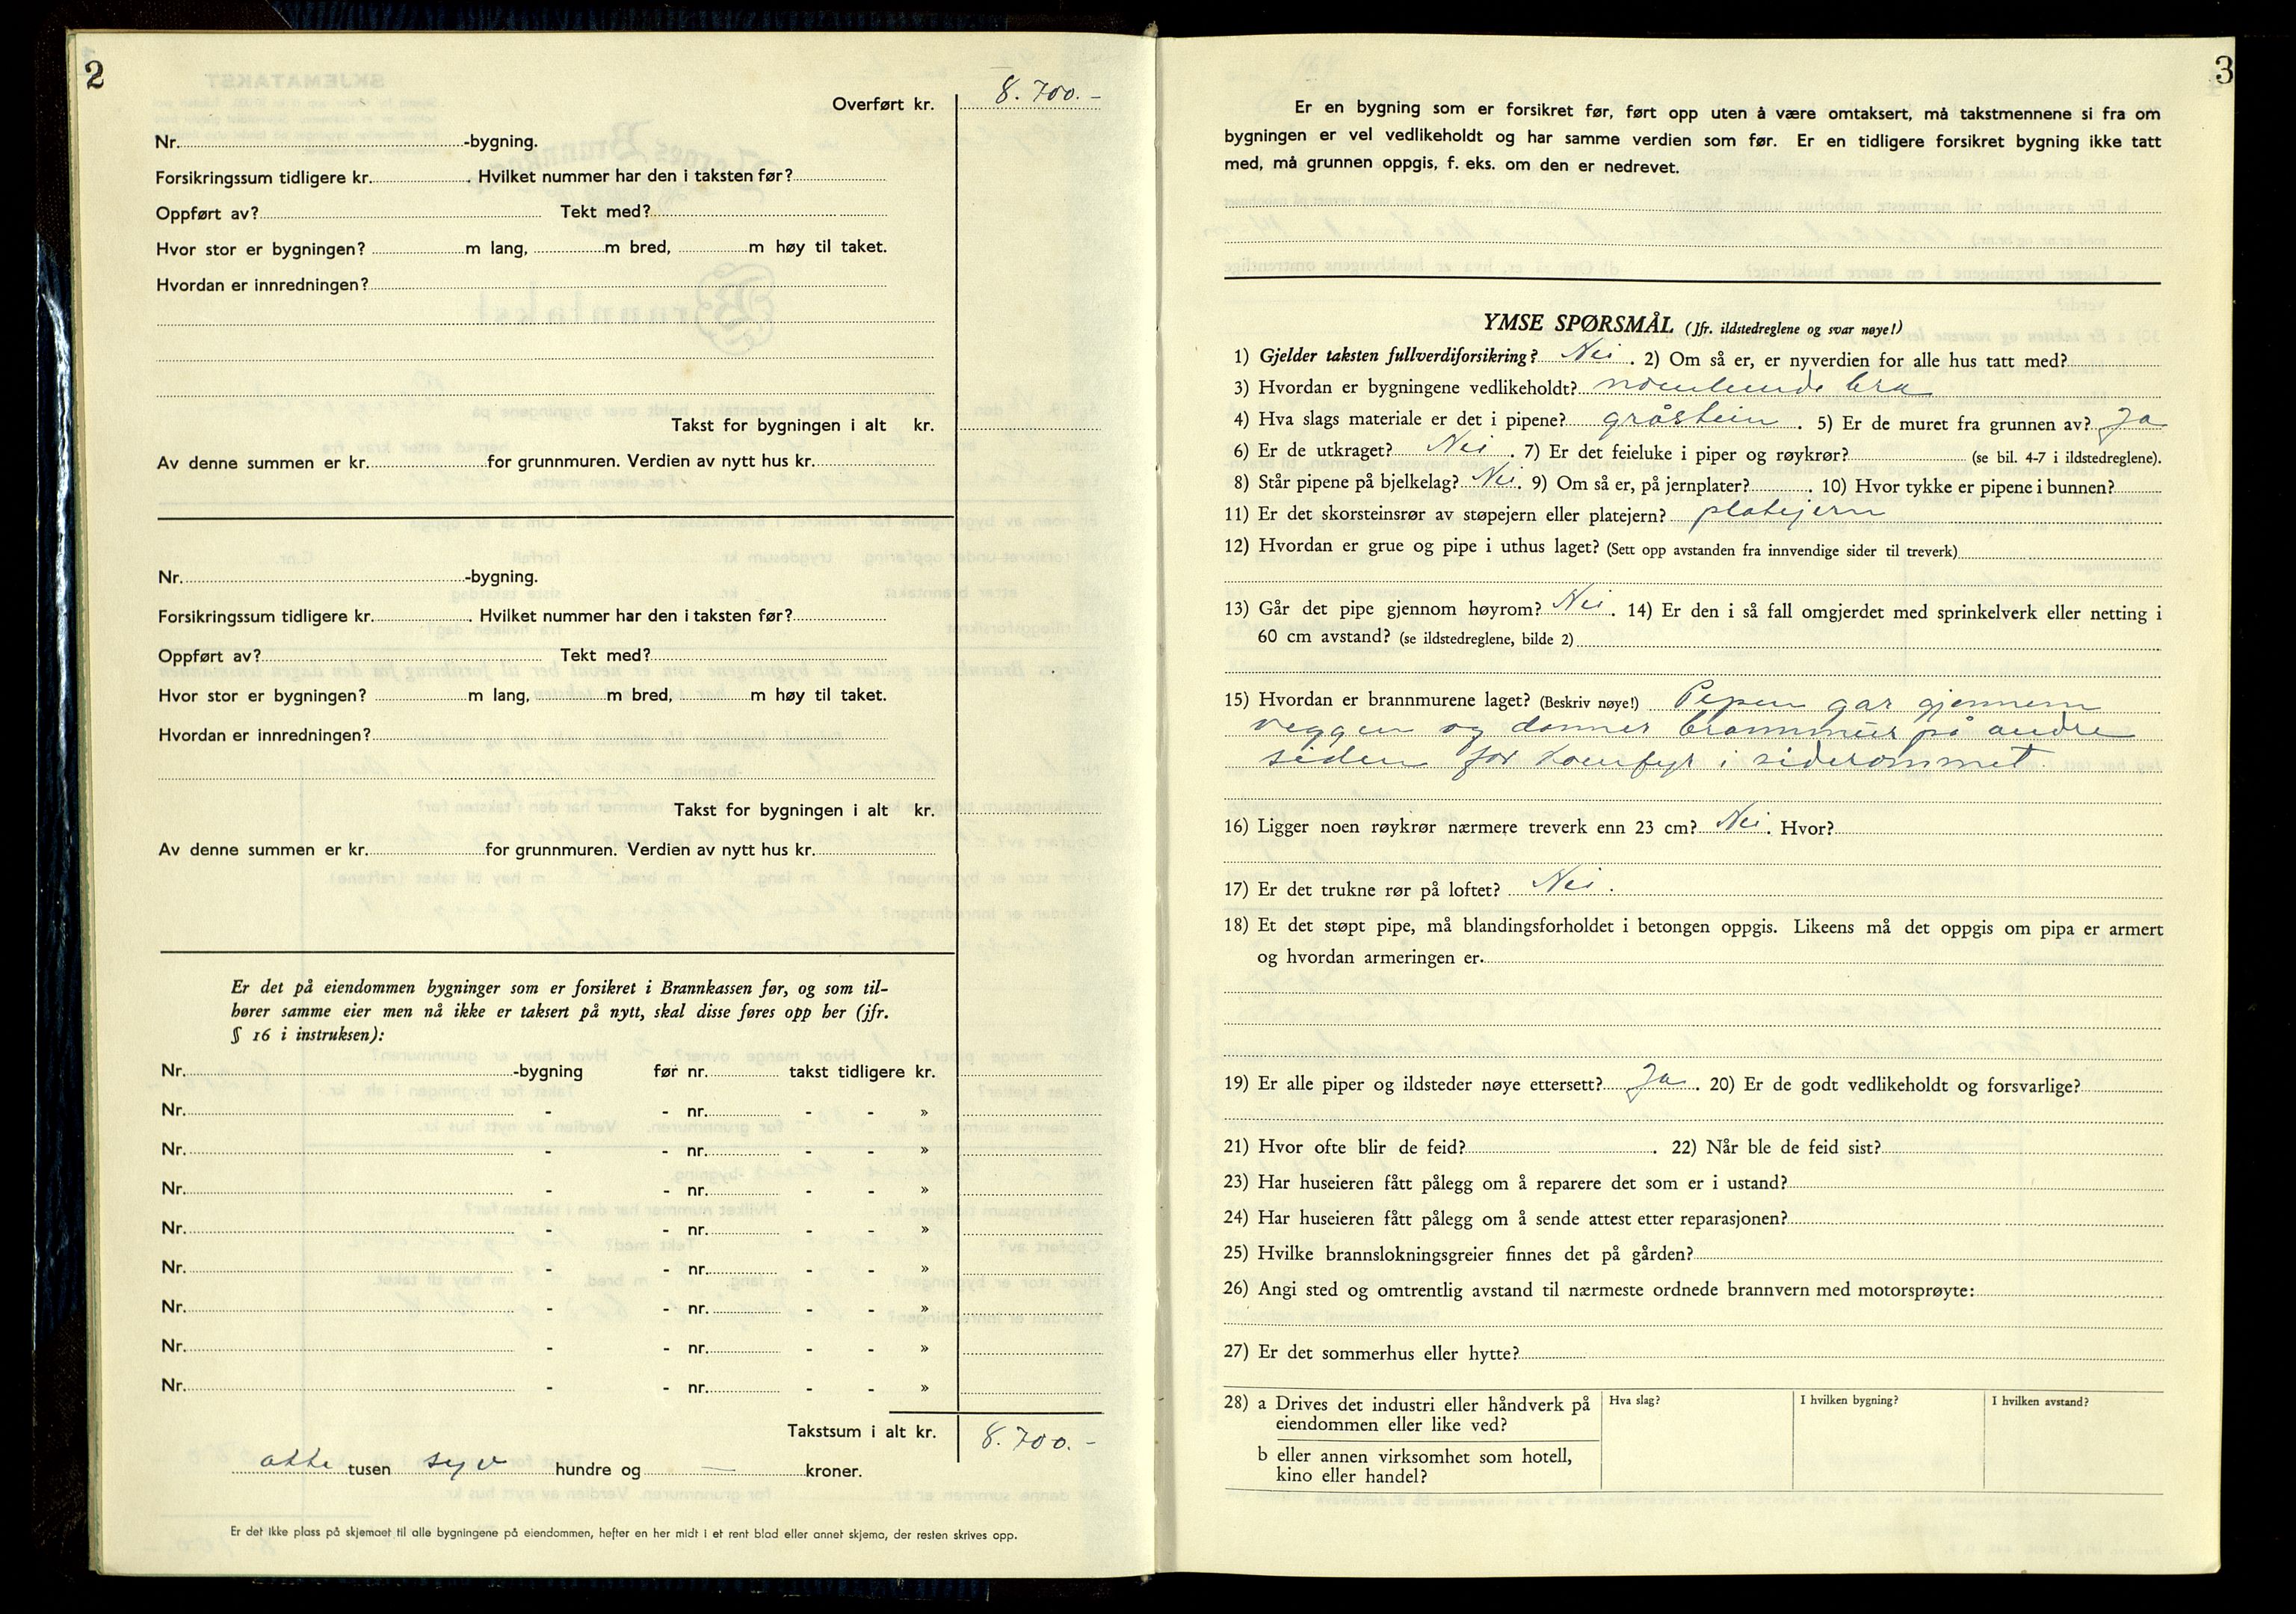 2
Overført kr. 8.700.-
Nr. -bygning.
Forsikringssum tidligere kr. . Hvilket nummer har den i taksten før?
Oppført av? Tekt med?
Hvor stor er bygningen? m lang, m bred, m høy til taket.
Hvordan er innredningen?
Takst for bygningen i alt kr.
Av denne summen er kr. for grunnmuren. Verdien av nytt hus kr.
Nr. -bygning.
Forsikringssum tidligere kr. . Hvilket nummer har den i taksten før?
Oppført av? Tekt med?
Hvor stor er bygningen? m lang, m bred, m høy til taket.
Hvordan er innredningen?
Takst for bygningen i alt kr.
Av denne summen er kr. for grunnmuren. Verdien av nytt hus kr.
Er det på eiendommen bygninger som er forsikret i Brannkassen før, og som til-
hører samme eier men nå ikke er taksert på nytt, skal disse føres opp her (jfr.
§ 16 i instruksen):
Nr. -bygning før nr. takst tidligere kr.
Nr. - - nr. - - »
Nr. - - nr. - - »
Nr. - - nr. - - »
Nr. - - nr. - - »
Nr. - - nr. - - »
Nr. - - nr. - - »
Nr. - - nr. - - »
Nr. - - nr. - - »
Takstsum i alt kr. 8.700.-
otte tusen syv hundre og — kroner.
Er det ikke plass på skjemaet til alle bygningene på eiendommen, hefter en her midt i et rent blad eller annet skjema, der resten skrives opp.
3
Er en bygning som er forsikret før, ført opp uten å være omtaksert, må takstmennene si fra om
bygningen er vel vedlikeholdt og har samme verdien som før. Er en tidligere forsikret bygning ikke tatt
med, må grunnen oppgis, f. eks. om den er nedrevet.
YMSE SPØRSMÅL (Jfr. ildstedreglene og svar nøye!)
1) Gjelder taksten fullverdiforsikring? Nei . 2) Om så er, er nyverdien for alle hus tatt med?
3) Hvordan er bygningene vedlikeholdt? noenlunde bra
4) Hva slags materiale er det i pipene? gråstein . 5) Er de muret fra grunnen av? Ja
6) Er de utkraget? Nei . 7) Er det feieluke i piper og røykrør? (se bil. 4-7 i ildstedreglene).
8) Står pipene på bjelkelag? Nei. 9) Om så er, på jernplater? . 10) Hvor tykke er pipene i bunnen?
11) Er det skorsteinsrør av støpejern eller platejern? platejern
12) Hvordan er grue og pipe i uthus laget? (Sett opp avstanden fra innvendige sider til treverk)
13) Går det pipe gjennom høyrom? Nei . 14) Er den i så fall omgjerdet med sprinkelverk eller netting i
60 cm avstand? (se ildstedreglene, bilde 2)
15) Hvordan er brannmurene laget? (Beskriv nøye!) Pipen gar gjennem
veggen og danner brannmur på andre
siden for komfyr i siderommet.
16) Ligger noen røykrør nærmere treverk enn 23 cm? Nei. Hvor?
17) Er det trukne rør på loftet? Nei .
18) Et det støpt pipe, må blandingsforholdet i betongen oppgis. Likeens må det oppgis om pipa er armert
og hvordan armeringen er.
19) Er alle piper og ildsteder nøye ettersett? Ja . 20) Er de godt vedlikeholdt og forsvarlige?
21) Hvor ofte blir de feid? . 22) Når ble de feid sist?
23) Har huseieren fått pålegg om å reparere det som er i ustand?
24) Har huseieren fått pålegg om å sende attest etter reparasjonen?
25) Hvilke brannslokningsgreier finnes det på gården?
26) Angi sted og omtrentlig avstand til nærmeste ordnede brannvern med motorsprøyte:
27) Er det sommerhus eller hytte?
28) a Drives det industri eller håndverk på Hva slag? I hvilken bygning? I hvilken avstand?
eiendommen eller like ved?
b eller annen virksomhet som hotell,
kino eller handel?